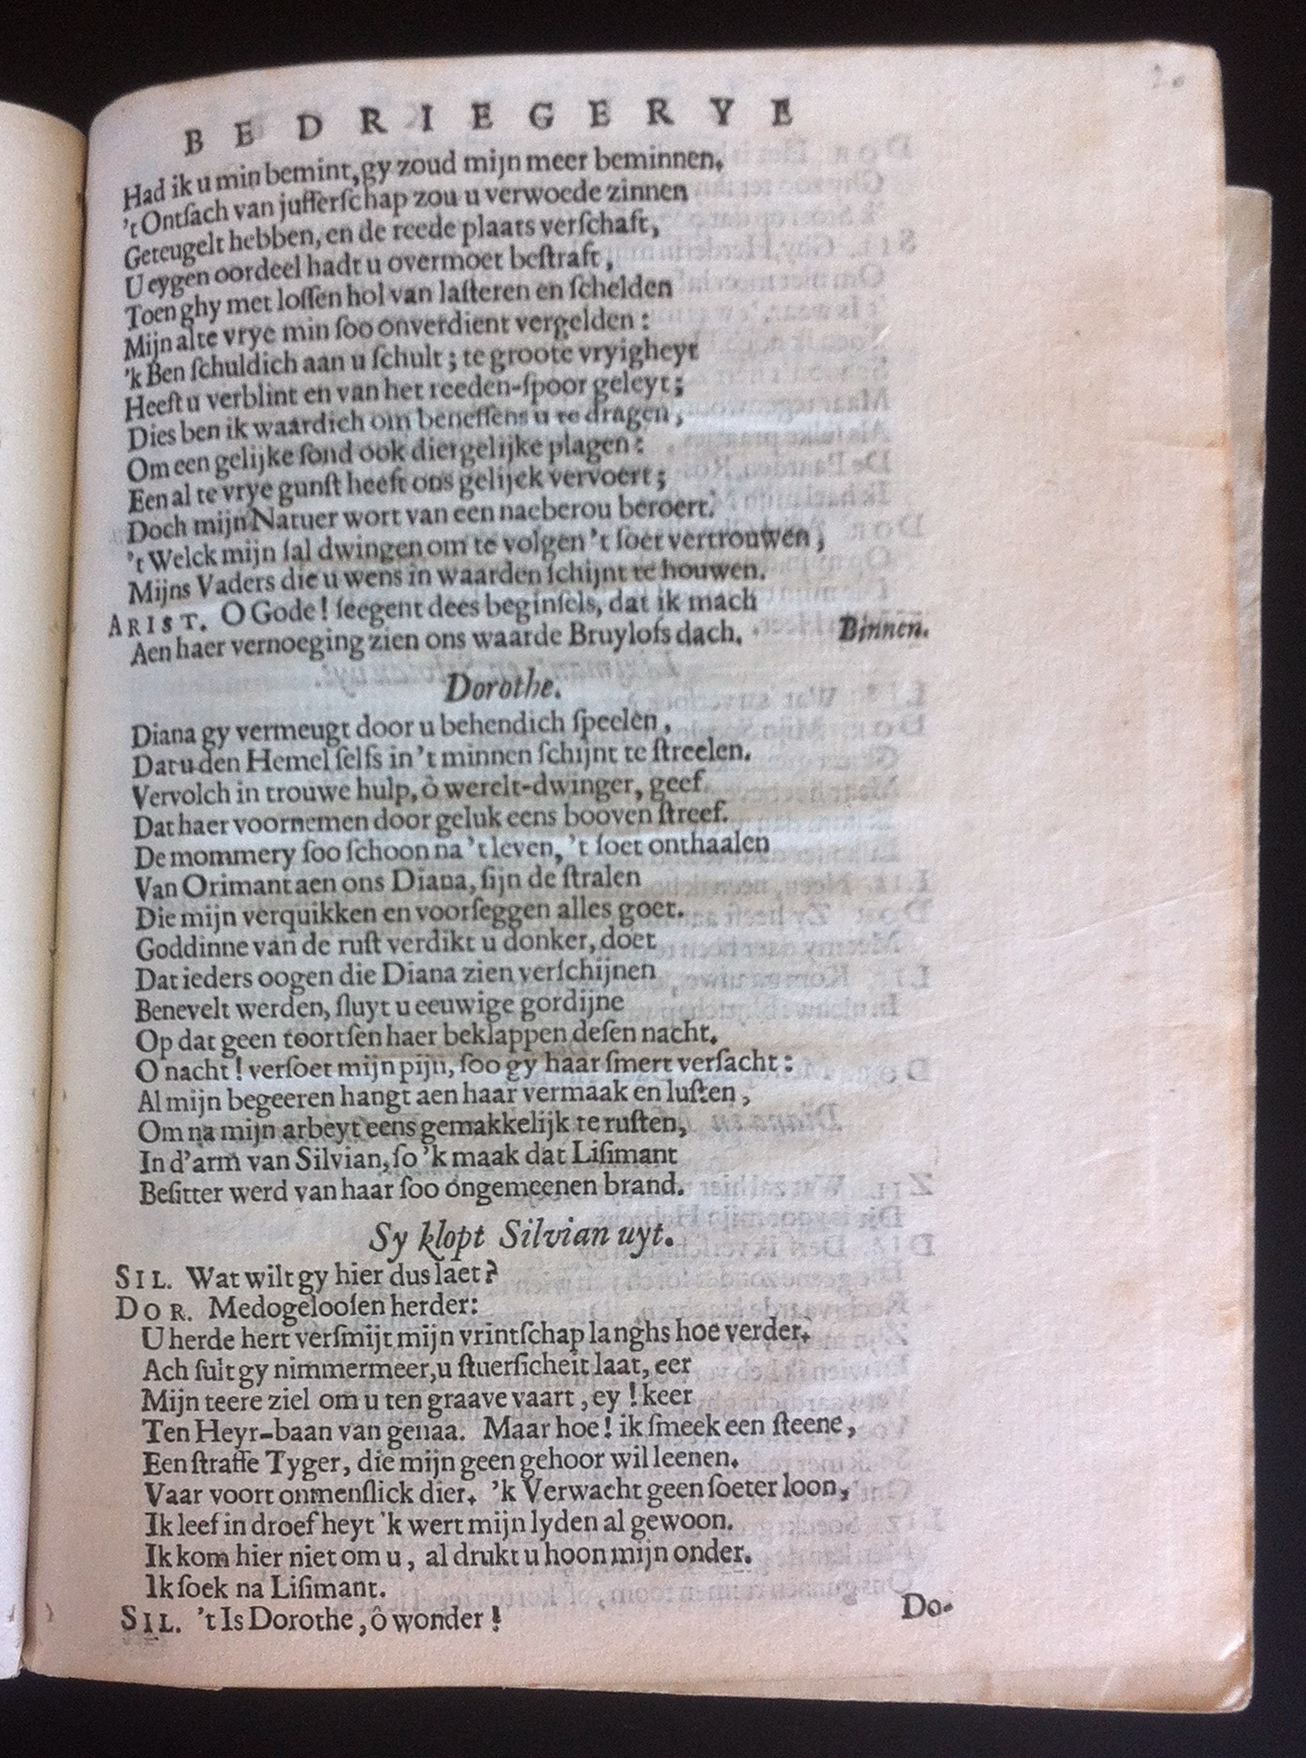 BEDRIEGERYE
Had ik u min bemint, gy zoud mijn meer beminnen.
't Ontſach van jufferſchap zou u verwoede zinnen
Geteugelt hebben, en de reede plaats verſchaft,
U eygen oordeel hadt u overmoet beſtraft,
Toen ghy met loſſen hol van laſteren en ſchelden
Mijn alte vrye min ſoo onverdient vergelden:
'k Ben ſchuldich aan u ſchult; te groote vryigheyt
Heeft u verblint en van het reeden-ſpoor geleyt;
Dies ben ik waardich om beneffens u te dragen,
Om een gelijke ſond ook diergelijke plagen:
Een al te vrye gunſt heeft ons gelijck vervoert;
Doch mijn Natuer wort van een naeberou beroert.
't Welck mijn ſal dwingen om te volgen 't ſoet vertrouwen,
Mijns Vaders die u wens in waarden ſchijnt te houwen.
ARIST. O Gode! ſeegent dees beginſels, dat ik mach
Aen haer vernoeging zien ons waarde Bruylofs dach. Binnen.
Dorothe.
Diana gy vermeugt door u behendich ſpeelen,
Dat u den Hemel ſelfs in 't minnen ſchijnt te ſtreelen.
Vervolch in trouwe hulp, ò werelt-dwinger, geef
Dat haer voornemen door geluk eens booven ſtreef.
De mommery ſoo ſchoon na 't leven, 't ſoet onthaalen
Van Orimant aen ons Diana, ſijn de ſtralen
Die mijn verquikken en voorſeggen alles goet.
Goddinne van de ruſt verdikt u donker, doet
Dat ieders oogen die Diana zien verſchijnen
Benevelt werden, ſluyt u eeuwige gordijne
Op dat geen toortſen haer beklappen deſen nacht.
O nacht! verſoet mijn pijn, ſoo gy haar ſmert verſacht:
Al mijn begeeren hangt aen haar vermaak en luſten,
Om na mijn arbeyt eens gemakkelijk te ruſten,
In d'arm van Silvian, ſo 'k maak dat Liſimant
Beſitter werd van haar ſoo ongemeenen brand.
Sy klopt Silvian uyt.
SIL. Wat wilt gy hier dus laet?
DOR. Medogelooſen herder:
U herde hert verſmijt mijn vrintſchap langhs hoe verder.
Ach ſult gy nimmermeer, u ſtuerſicheit laat, eer
Mijn teere ziel om u ten graave vaart, ey! keer
Ten Heyr-baan van genaa. Maar hoe! ik ſmeek een ſteene,
Een ſtraffe Tyger, die mijn geen gehoor wil leenen.
Vaar voort onmenſlick dier. 'k Verwacht geen ſoeter loon,
Ik leef in droef heyt 'k wert mijn lyden al gewoon.
Ik kom hier niet om u, al drukt u hoon mijn onder.
Ik ſoek na Liſimant.
SIL. 't Is Dorothe, ô wonder!
Do-